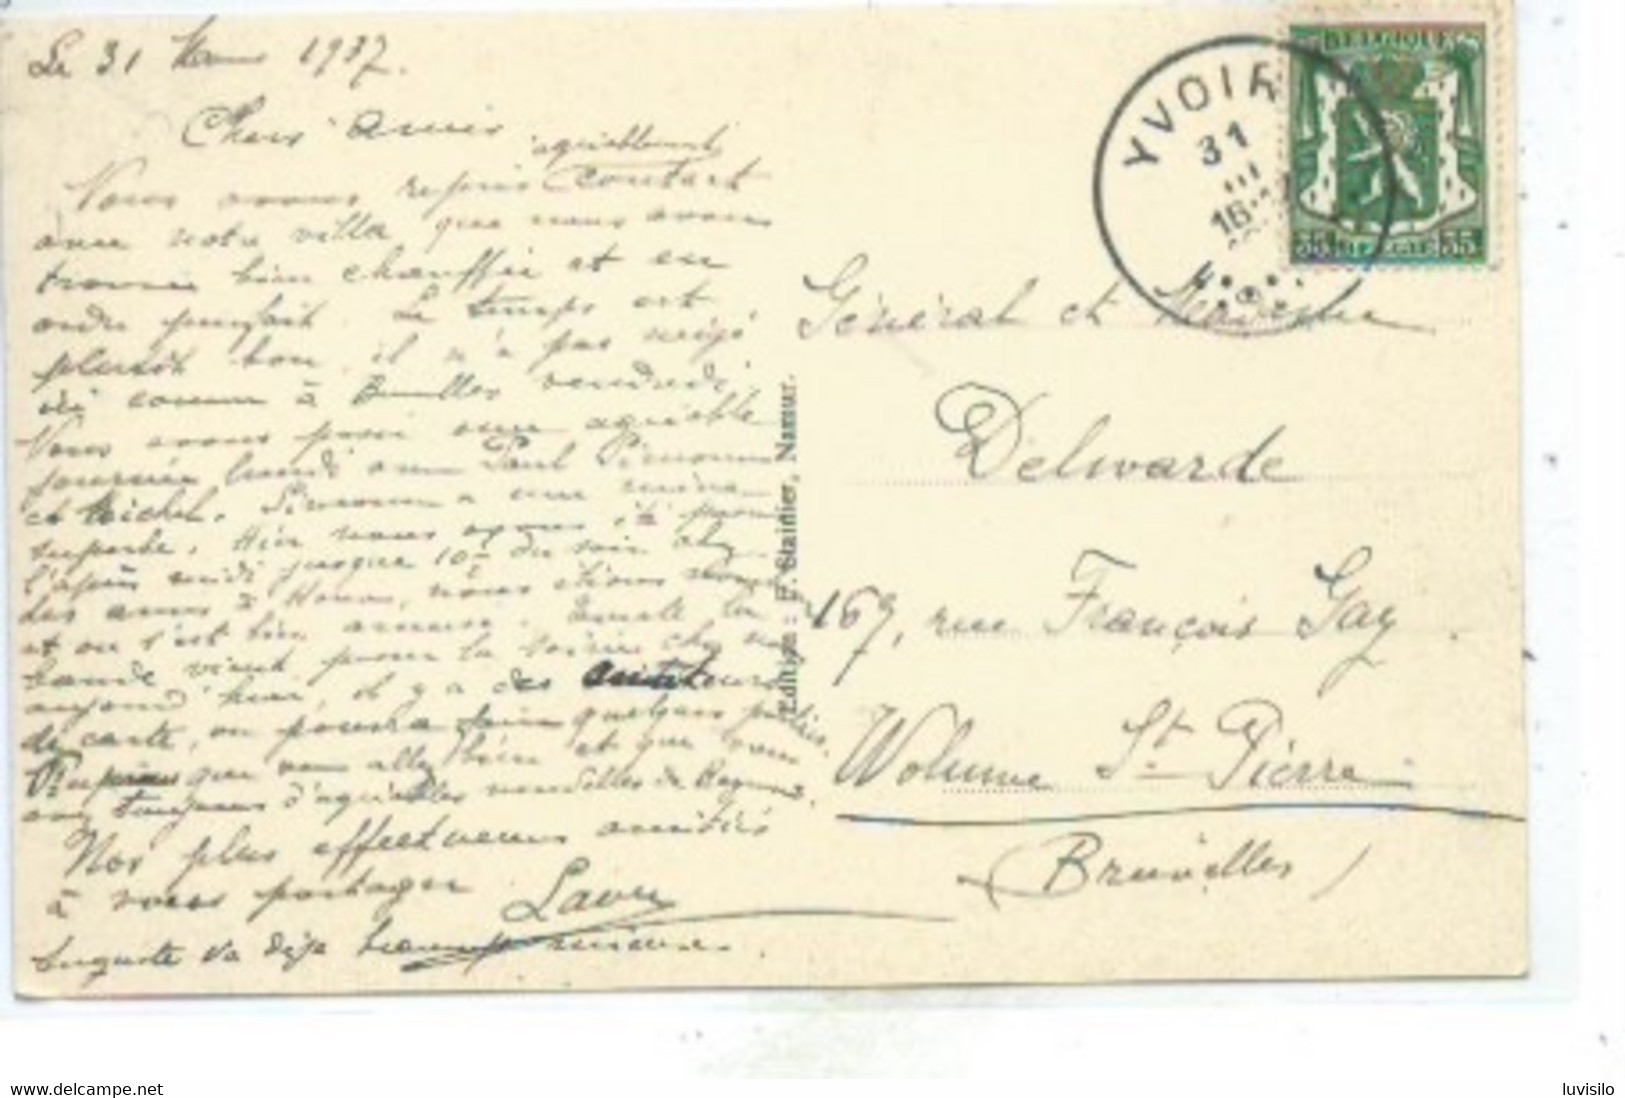 Le 31 Mars 1937.
Chers amis
agréablement
Nous avons repris contact
avec notre villa que nous avons
trouvée bien chauffée et en
ordre parfait. Le temps est
plutôt bon, il n'a pas neigé
ici comme à Bruxelles vendredi.
Nous avons passé une agréable
journée lundi avec Paul
et Michel. a une mine
superbe. Hier nous avons été passer
l'après midi jusque 10h du soir chez
des amis à nous étions
et on s'est bien amusé. la
bande vient pour la soirée chez nous
aujourd'hui, il y a des amateurs
de carte, on pourra faire quelques parties.
que vous allez bien et que vous
avez toujours d'agréables nouvelles de
Nos plus affectueuses amitiés
à vous partager
Laure
Auguste va déjà beaucoup mieux.
Edition : F. Stainier, Namur.
YVOIR
31
III
16
BELGIQUE
35 BELGIE 35
Général et Madame
Delwarde
167, rue François Gay
Woluwe St Pierre
(Bruxelles)
delcampe.net
luvisilo